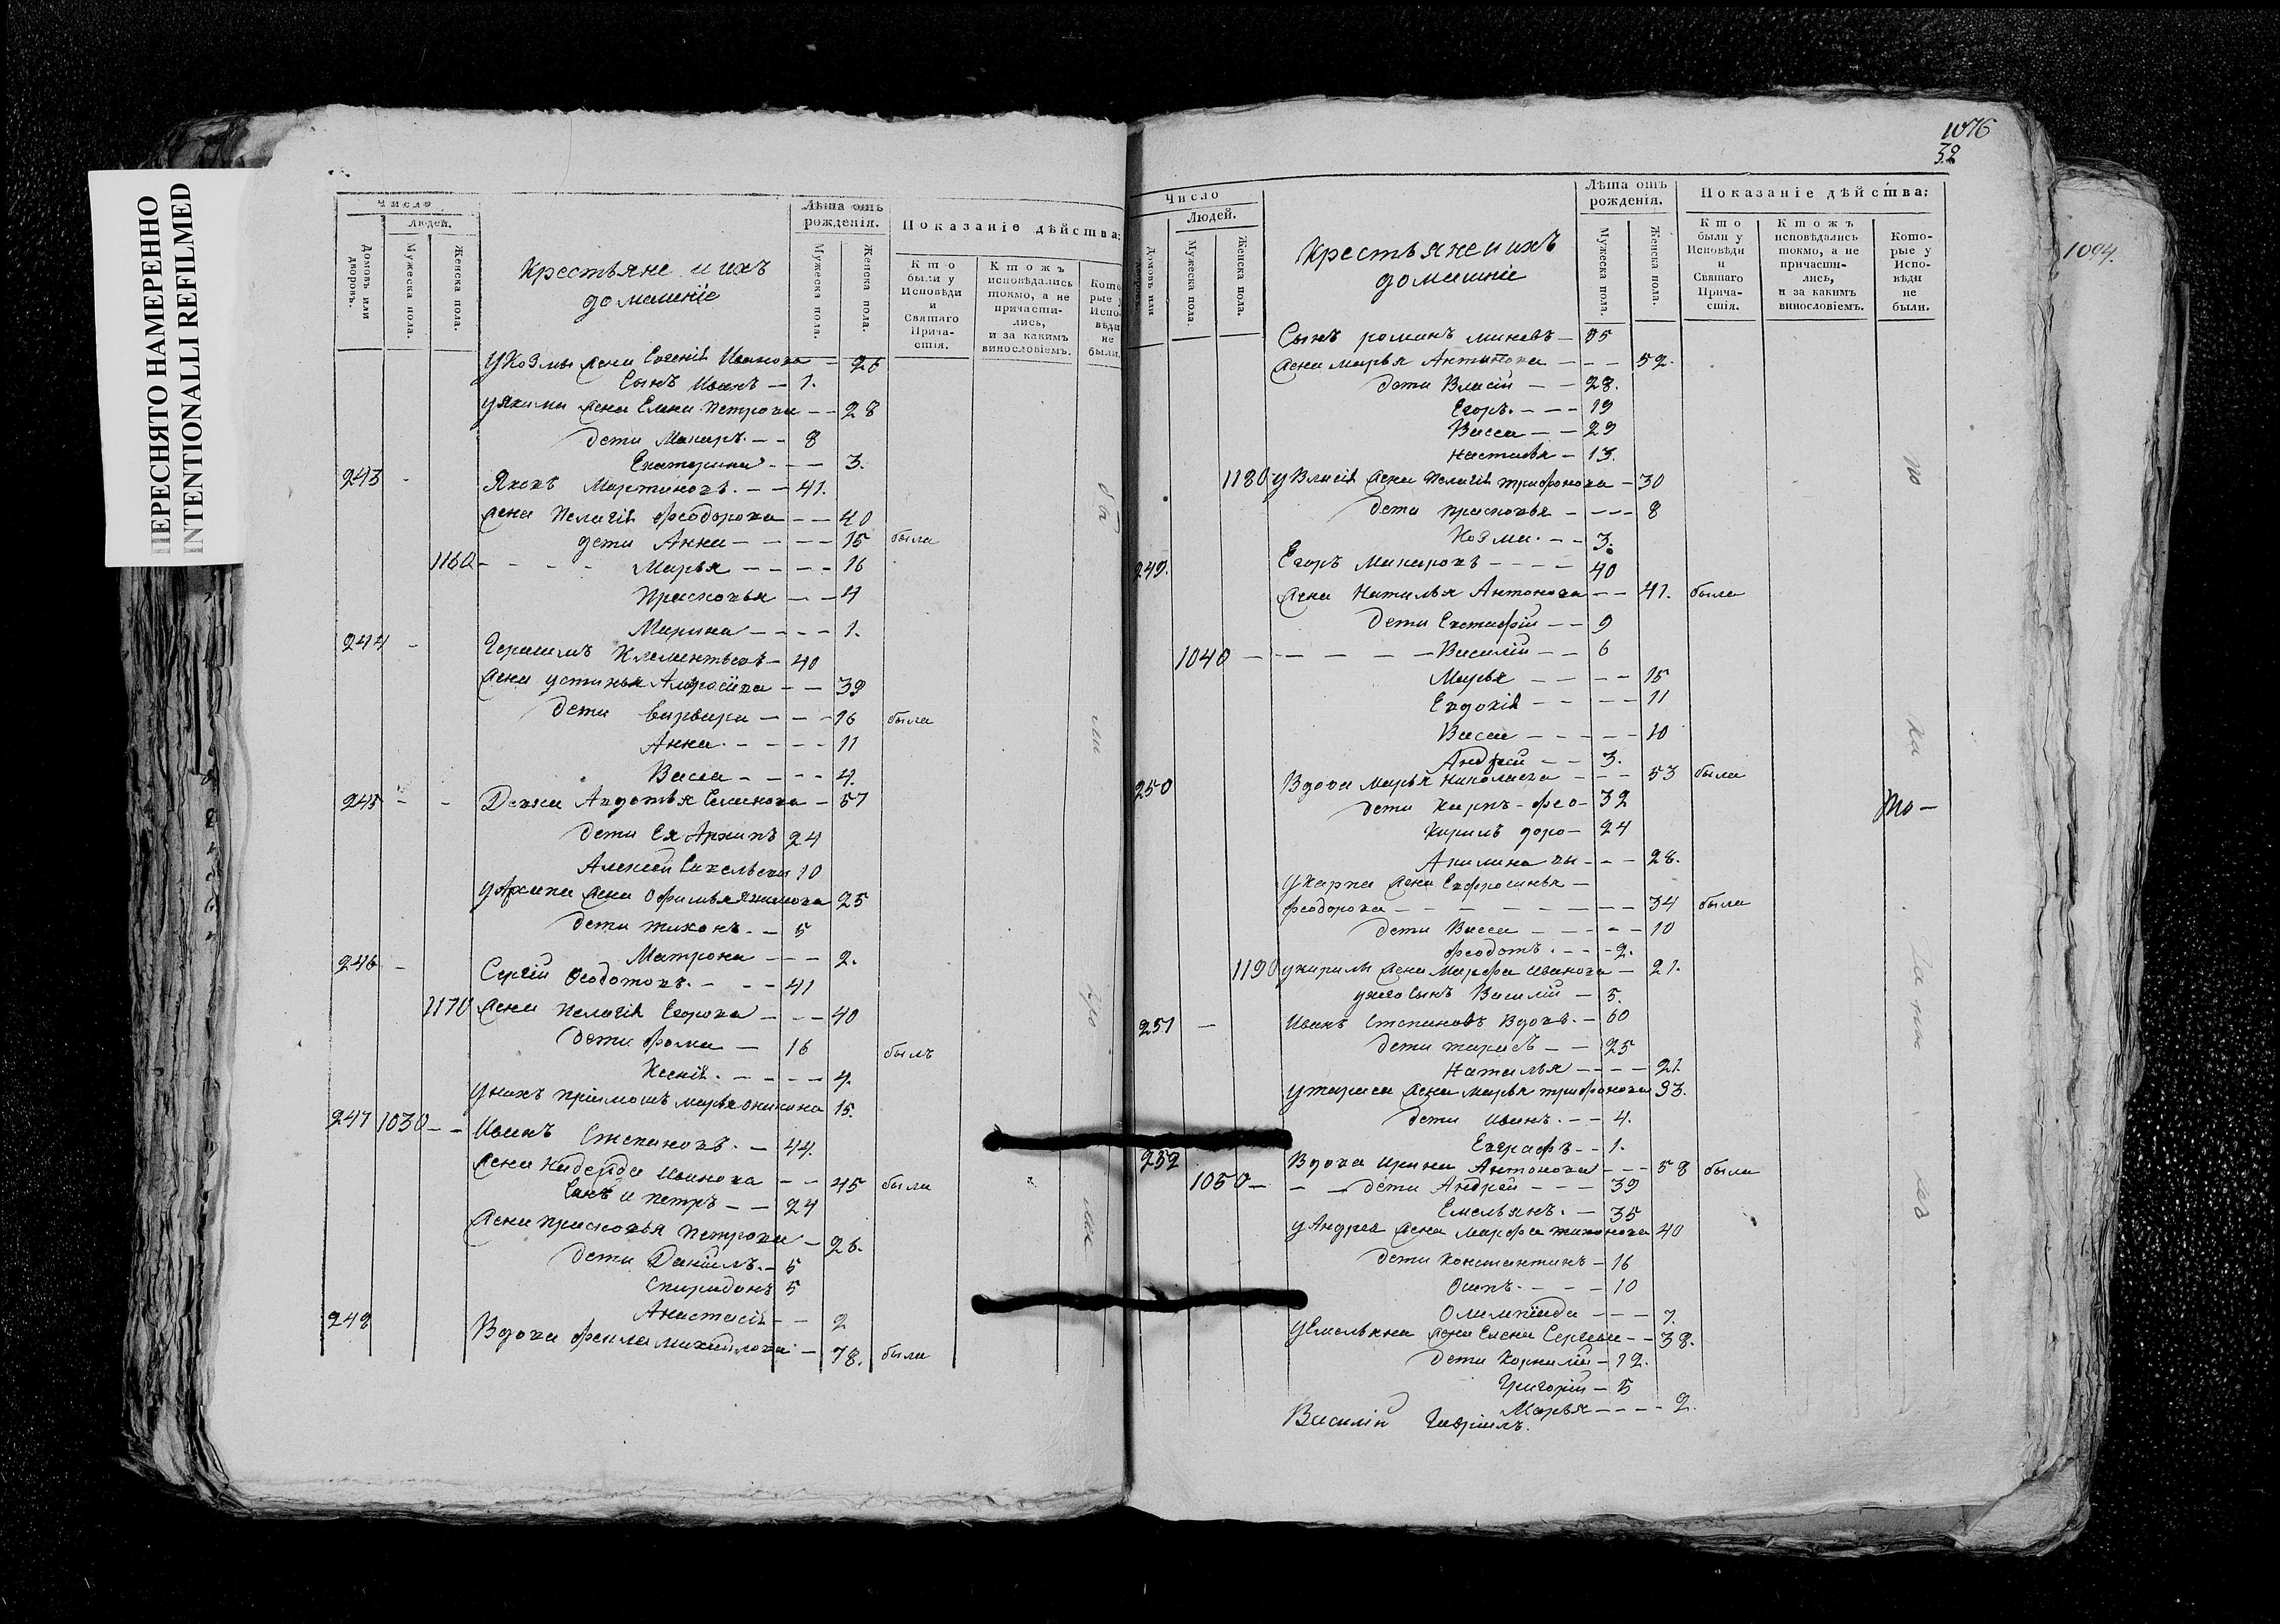 ПЕРЕСНЯТО НАМЕРЕННО
INTENTIONALLI REFILMED
Число
Людей.
Домовъ или дворовъ.
Мужеска пола.
Женска пола.
Крестьяне и ихъ
домашніе
Лѣта отъ
рожденія.
Мужеска пола.
Женска пола.
Показаніе дѣйства:
Кто были у Исповѣди и Святаго Причастія.
Ктожъ исповѣдались токмо, а не причастились, и за какимъ винословіемъ.
Которые у Исповѣди не были.
У Козмы жена Евгенія Иванова — 26
Сынъ Иванъ — 1.
У Якима жена Елена Петрова — — 28
дети Макаръ — — 8
Екатерина — — — 3.
243 Яковъ Мартиновъ. — — 41.
жена Пелагія Феодорова — — 40
дети Анна — — — — 15 была
1160 — — — — Марья — — — — 16
Прасковья — — 4
Марина — — — — 1.
244 Герасимъ Клементьевъ — 40
жена Устинья — — 39
дети Варвара — — — 16 была
Анна. — — — — 11
Васса — — — — 4.
245 — — Авдотья Семенова — 57
дети Ея Архипъ 24
Алексей Савельевы 10
У Архипа жена Офимья Якимова 25
дети Тихонъ. — 5
Матрона — — — 2.
246 — Сергій Феодотовъ. — — — 41
1170 жена Пелагія Егорова — — — 40
дети Фома — 16 былъ
Ксенія. — — — — 4.
У нихъ пріемошъ Марья Оникина 15.
247 1030 — — Иванъ Степановъ. — 44.
жена Надежда Иванова — — 45 была
Сынъ и Петръ — — 24
жена Прасковья Петрова — 26.
дети Даніилъ. — 5
Спиридонъ 5
Анастасія — — 2
248 Вдова Фекла Михайлова — 78. была
1076
32
1094.
Число
Людей.
Домовъ или дворовъ.
Мужеска пола.
Женска пола.
Крестьяне и ихъ
домашніе
Лѣта отъ
рожденія.
Мужеска пола.
Женска пола.
Показаніе дѣйства:
Кто были у Исповѣди и Святаго Причастія.
Ктожъ исповѣдались токмо, а не причастились, и за какимъ винословіемъ.
Которые у Исповѣди не были.
Сынъ романъ миневъ — 55
жена Марья Антипова — — — 52.
дети Власій — — 28.
Егоръ. — — — 19
Васса — — 29
Настасья — 13.
1180 У Власія жена Пелагія Трифонова — 30
дети Прасковья — — — — 8
Козма. — — 3.
249. Егоръ Макаровъ — — — — 40
жена Наталья Антонова — — 41. была
дети Евстафій — — 9
1040 — — — — — — Василій — — 6
Марья — — — — 15
Евдокія — — — — 11
Васса — — — — — 10
Андрей — — 3.
250 Вдова Марья Николаева — — — 53 была
дети Карпъ — Фео — 32
Кирилъ доро — 24
Акилина вы — — — 28.
У Карпа жена Евфросинья —
Феодорова — — — — — — — — 34 была
дети Васса — — — — — 10
Феодотъ. — — — 2.
1190 У Кирилы жена Марфа Иванова — 21.
у него сынъ Василій — 5.
251 — Иванъ Степановъ вдовъ. — 60
дети Тарасъ — — 25
Наталья — — — — 21.
У Тараса жена Марья Трифонова 33.
дети Иванъ. — — 4.
Евграфъ — — 1.
252 Вдова Ирина Антонова — — — 58 была
1050 — — — дети Андрей — — — 39
Емельянъ. — 35
У Андрея жена Марфа Тихонова 40
дети Константинъ — 16
Осипъ. — — — 10
Олимпіада — — — 7.
У Емельяна жена Елена Сергеева — — 38.
дети Корнилій — 12.
Григорій — 5
Марья — — — — 2.
Василій Гавріилъ.